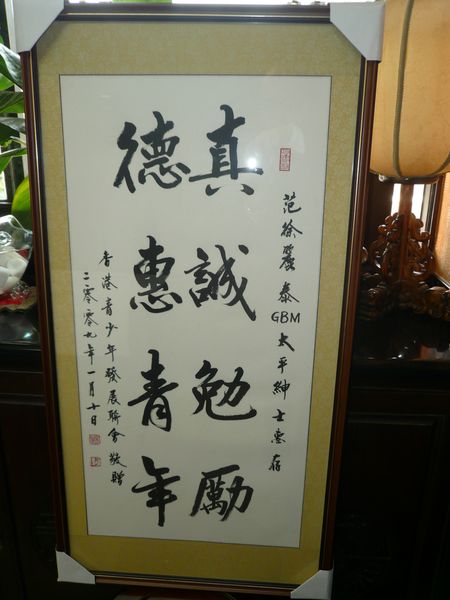 范徐麗泰GBM太平紳士惠存
真誠勉勵
德惠青年
香港青少年發展聯會敬贈
二零零九年一月十日